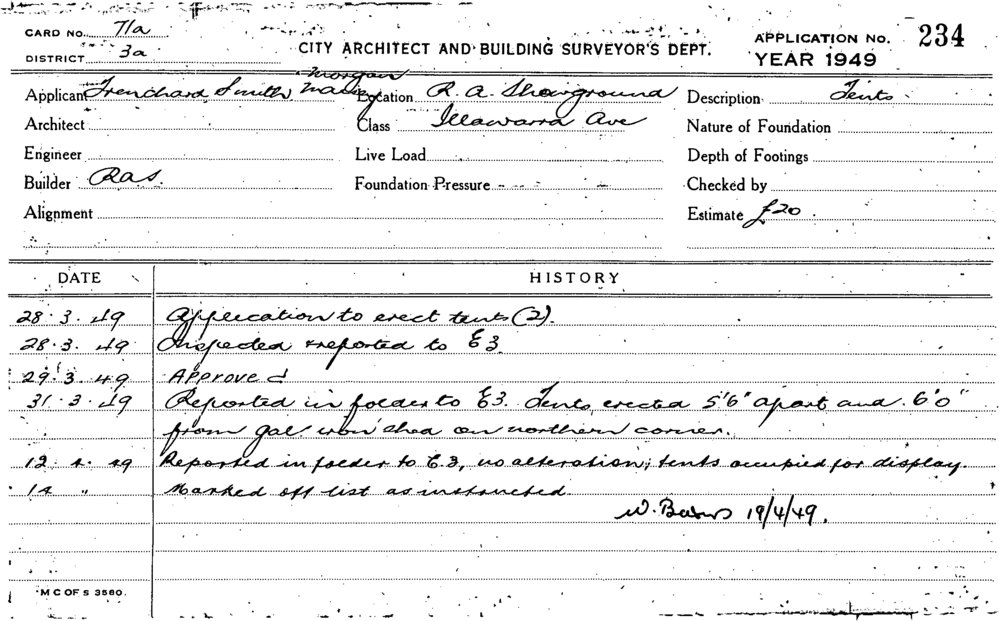 CARD NO. 71a
DISTRICT 3a
CITY ARCHITECT AND BUILDING SURVEYOR'S DEPT.
APPLICATION NO. 234
YEAR 1949
Morgan
Applicant Trenchard Smith
Location R. A. Showground
Description Tents
Architect
Class Illawarra Ave
Nature of Foundation
Engineer
Live Load
Depth of Footings
Builder Ras.
Foundation Pressure
Checked by
Alignment
Estimate £20
DATE HISTORY
28.3.49 Application to erect tents (2).
28.3.49 Inspected & reported to E3
29.3.49 Approved
31.3.49 Reported in folder to E3. Tents erected 5'6" apart and 6'0"
from gal iron shed on northern corner.
12.4.49 Reported in folder to E.3, no alteration; tents occupied for display.
14 " Marked off list as instructed
W. 19/4/49.
M C OF S 3560.